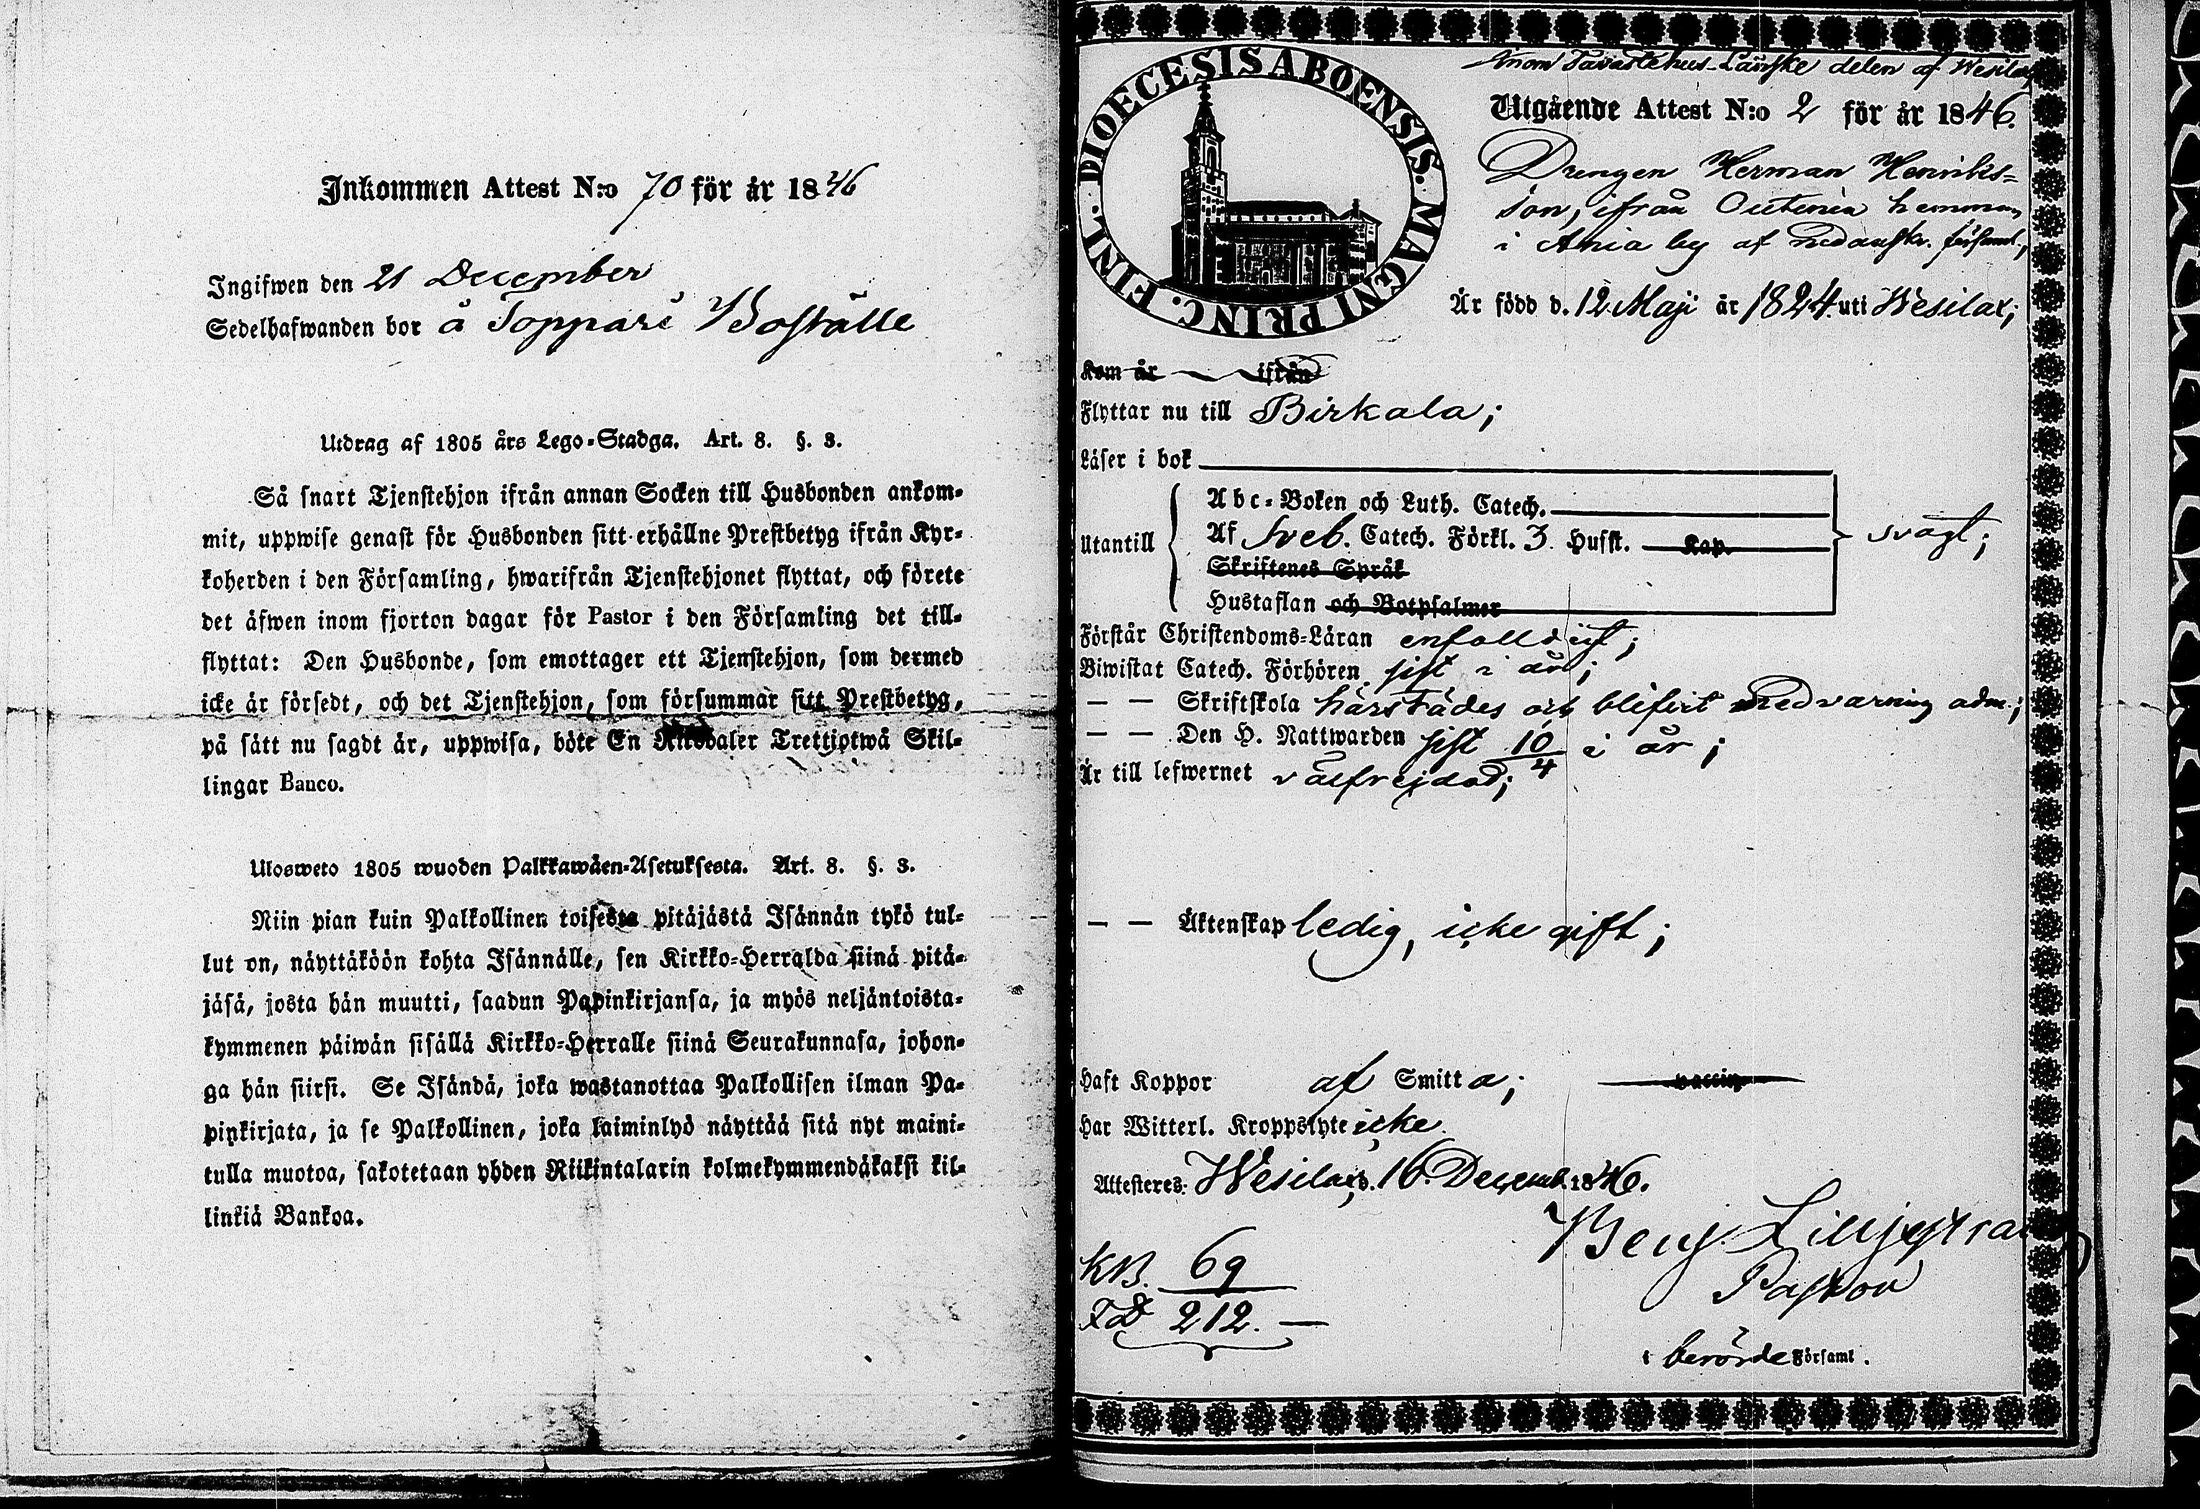 Inkommen Attest N:o 70 för år 1846
Ingifwen den 21 December
Sedelhafwanden bor å Soppari Boställe
Utdrag af 1805 års Lego-Stadga. Art. 8. §. 3.
Så snart Tjenstehjon ifrån annan Socken till Husbonden ankom-
mit, uppwise genast för Husbonden sitt erhållne Prestbetyg ifrån Kyr-
koherden i den Församling, hwarifrån Tjenstehjonet flyttat, och förete
det äfwen inom fjorton dagar för Pastor i den Församling det till-
flyttat: Den Husbonde, som emottager ett Tjenstehjon, som dermed
icke är försedt, och det Tjenstehjon, som försummar sitt Prestbetyg,
på sätt nu sagdt är, uppwisa, böte En Riksdaler Trettiotwå Skil-
lingar Banco.
Ulosweto 1805 wuoden Palkkawäen-Asetuksesta. Art. 8. §. 3.
Niin pian kuin Palkollinen toisesta pitäjästä Isännän tykö tul-
lut on, näyttäköön kohta Isännälle, sen Kirkko-Herralda siinä pitä-
jäsä, josta hän muutti, saadun Papinkirjansa, ja myös neljäntoista-
kymmenen päiwän sisällä Kirkko-Herralle siinä Seurakunnasa, johon-
ga hän siirsi. Se Isändä, joka wastanottaa Palkollisen ilman Pa-
pinkirjata, ja se Palkollinen, joka laiminlyö näyttää sitä nyt maini-
tulla muotoa, sakotetaan yhden Riikintalarin kolmekymmendäkaksi kil-
linkiä Bankoa.
DIOECESIS ABOENSIS. MAGNI PRINC. FINL.
Inom Tavastehus Länske delen af Wesilax
Utgående Attest N:o 2 för år 1846.
Drengen Herman Henriks-
son, ifrån Outinen hemman
i Ania by af nedanskr. församl.,
Är född d. 12 Maji år 1824. uti Wesilax;
Kom år ifrån
Flyttar nu till Birkala;
Läser i bok
Abc-Boken och Luth. Catech.
Utantill Af Sveb. Catech. Förkl. 3. Husst. Kap. svagt;
Skriftenes Språk
Hustaflan och Botpsalmer
Förstår Christendoms-Läran enfalldigt;
Biwistat Catech. Förhören sist i år;
— — Skriftskola härstädes och blifvit med varning adm.;
— — Den H. Nattwarden sist 10/4 i år;
Är till lefwernet välfrejdad;
— — Äktenskap ledig, icke gift;
Haft Koppor af Smitta; vaccin
Har Witterl. Kroppslyte icke.
Attesteres. Wesilax d. 16. Decemb. 1846.
Benj. Lilljestrand
Pastor
i berörde Församl.
KB. 69
212. —